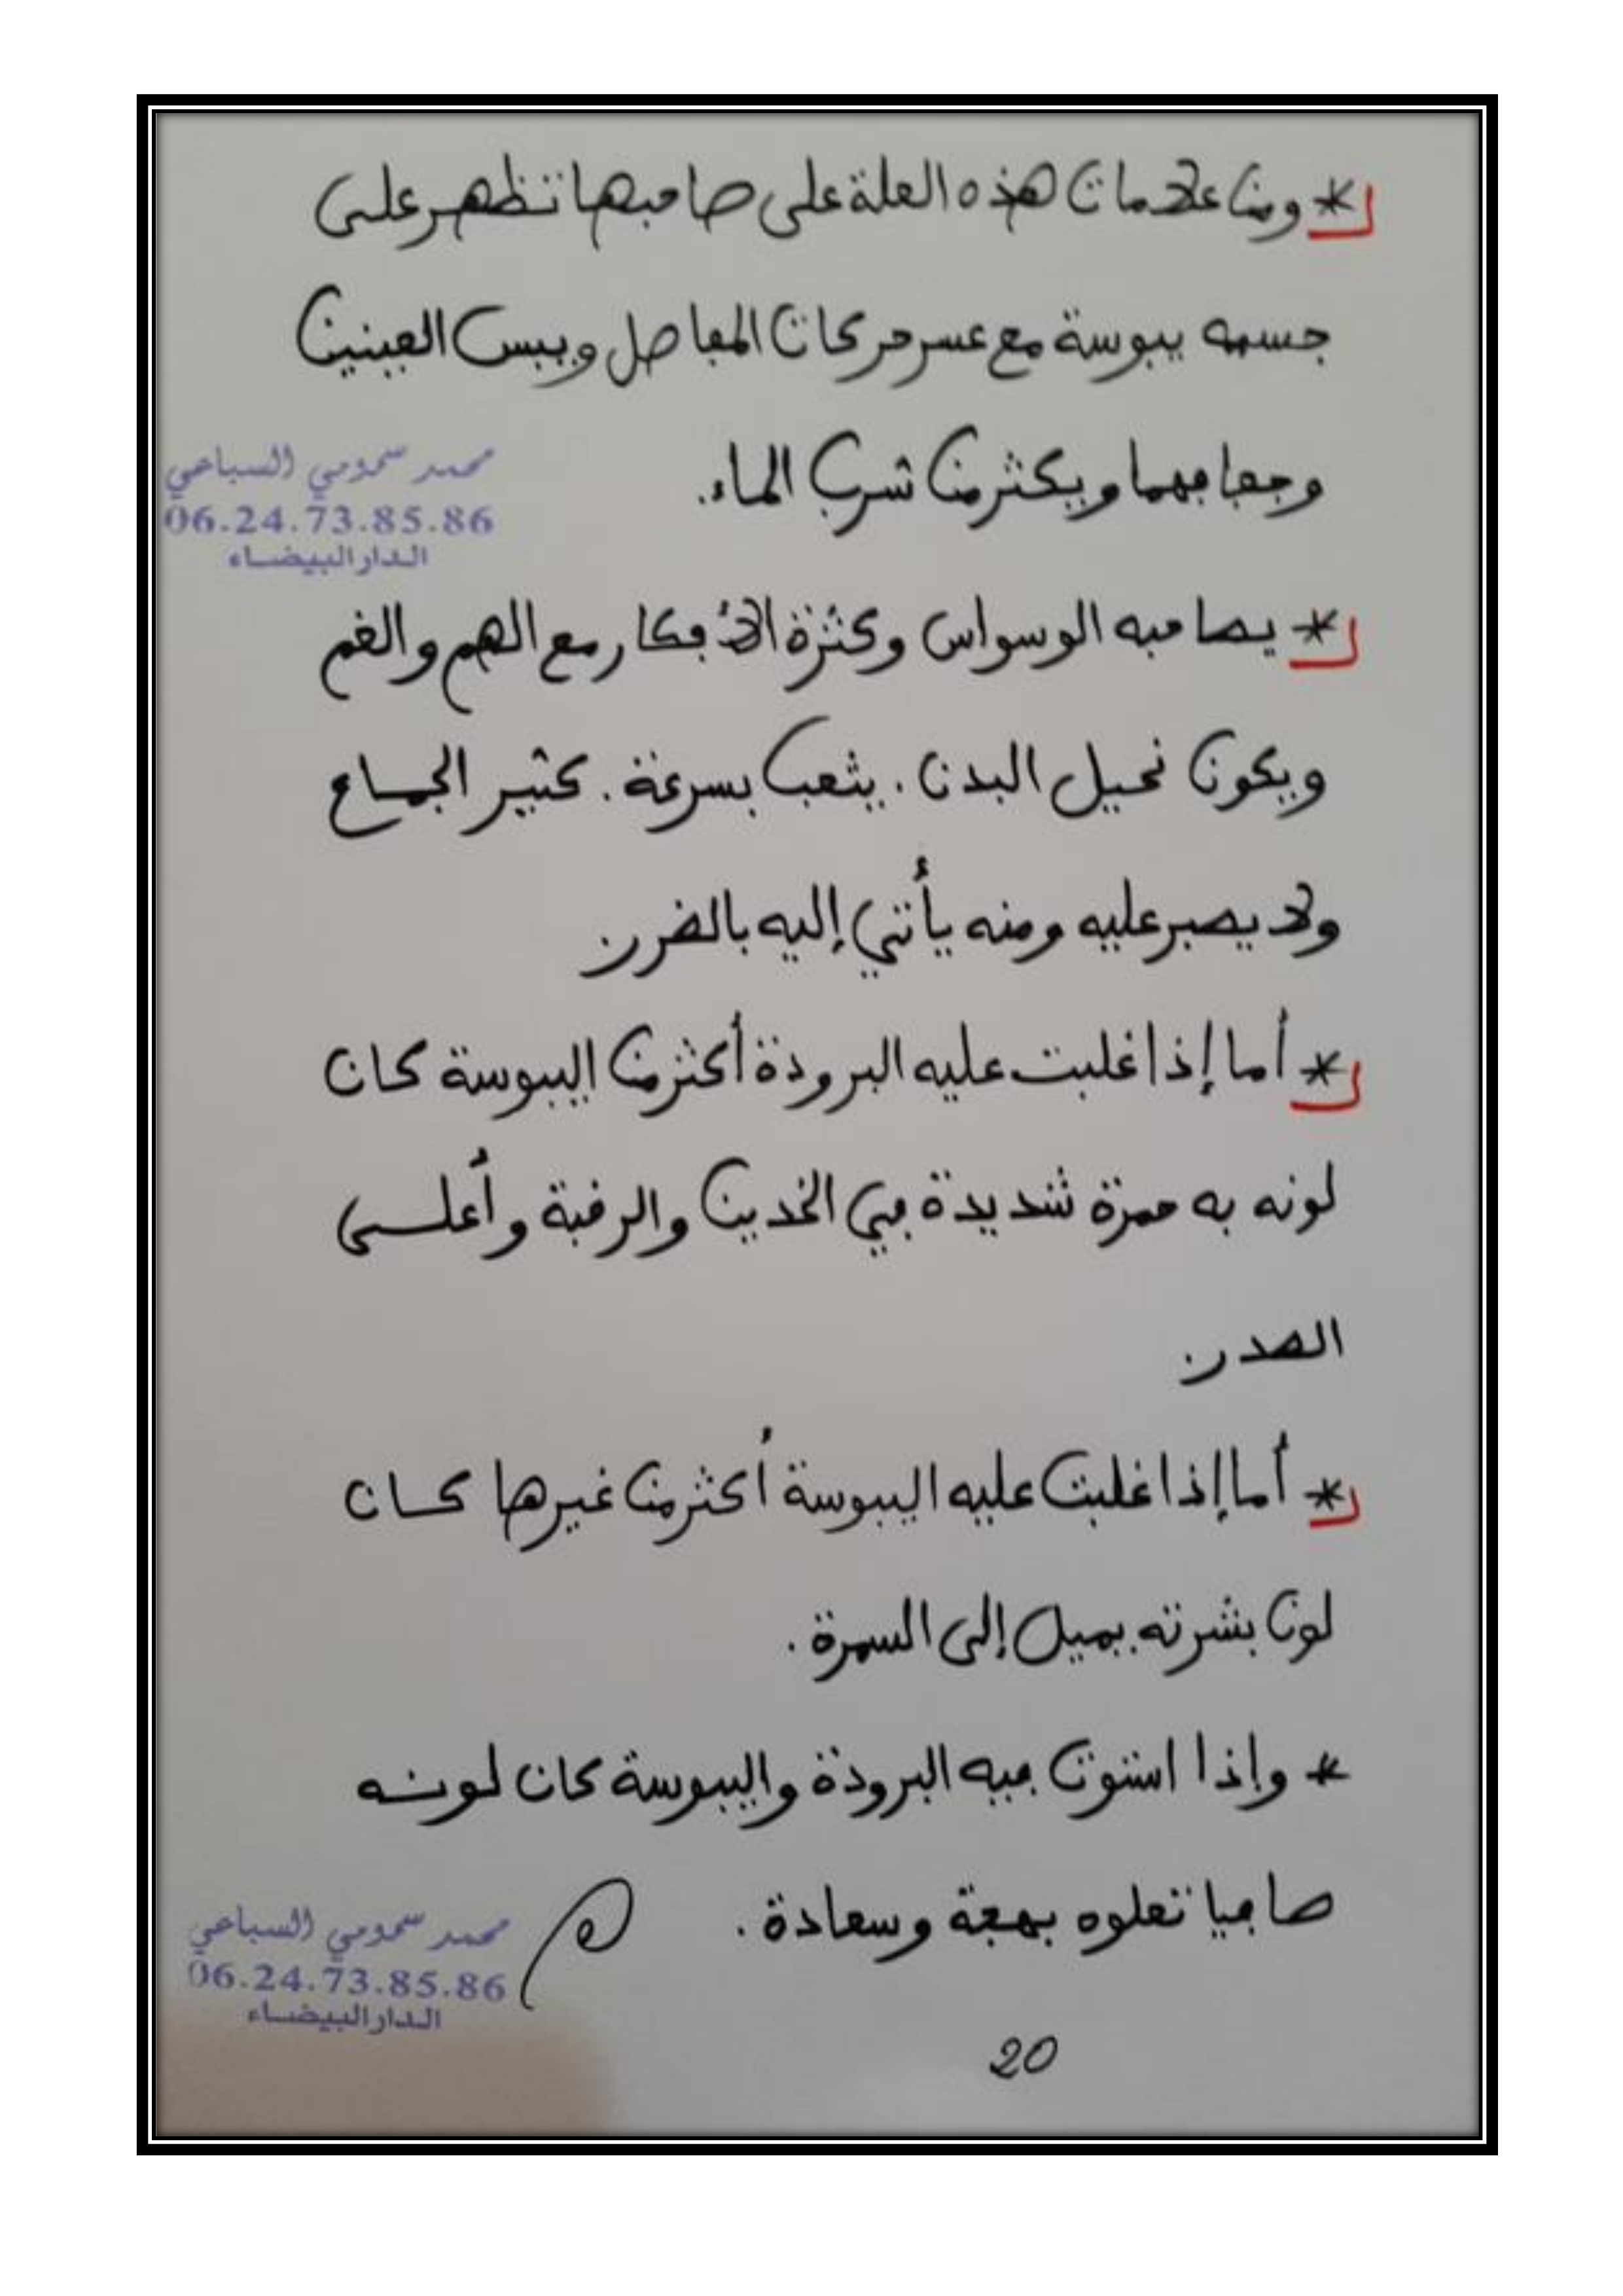 * ومن علامات هذه العلة على صاحبها تظهر على
جسمه يبوسة مع عسر حركات المفاصل ويبس العينين
وجفافهما ويكثر من شرب الماء.
محمد سمومي السباعي
06.24.73.85.86
الدار البيضاء
* يصاحبه الوسواس وكثرة الأفكار مع الهم والغم
ويكون نحيل البدن . يتعب بسرعة . كثير الجماع
ولا يصبر عليه ومنه يأتي إليه بالضرر.
* أما إذا غلبت عليه البرودة أكثر من اليبوسة كان
لونه به حمرة شديدة في الخدين والرقبة وأعلى
الصدر.
* أما إذا غلبت عليه اليبوسة أكثر من غيرها كان
لون بشرته يميل إلى السمرة .
* وإذا استوت فيه البرودة واليبوسة كان لونه
صافيا تعلوه بهجة وسعادة .
محمد سمومي السباعي
06.24.73.85.86
الدار البيضاء
20